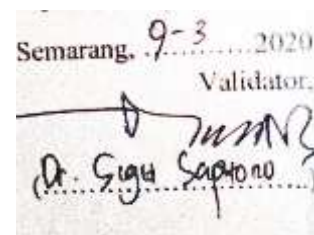 Semarang, 9-3 2020
Validator,
(Dr. Sigit Saptono)